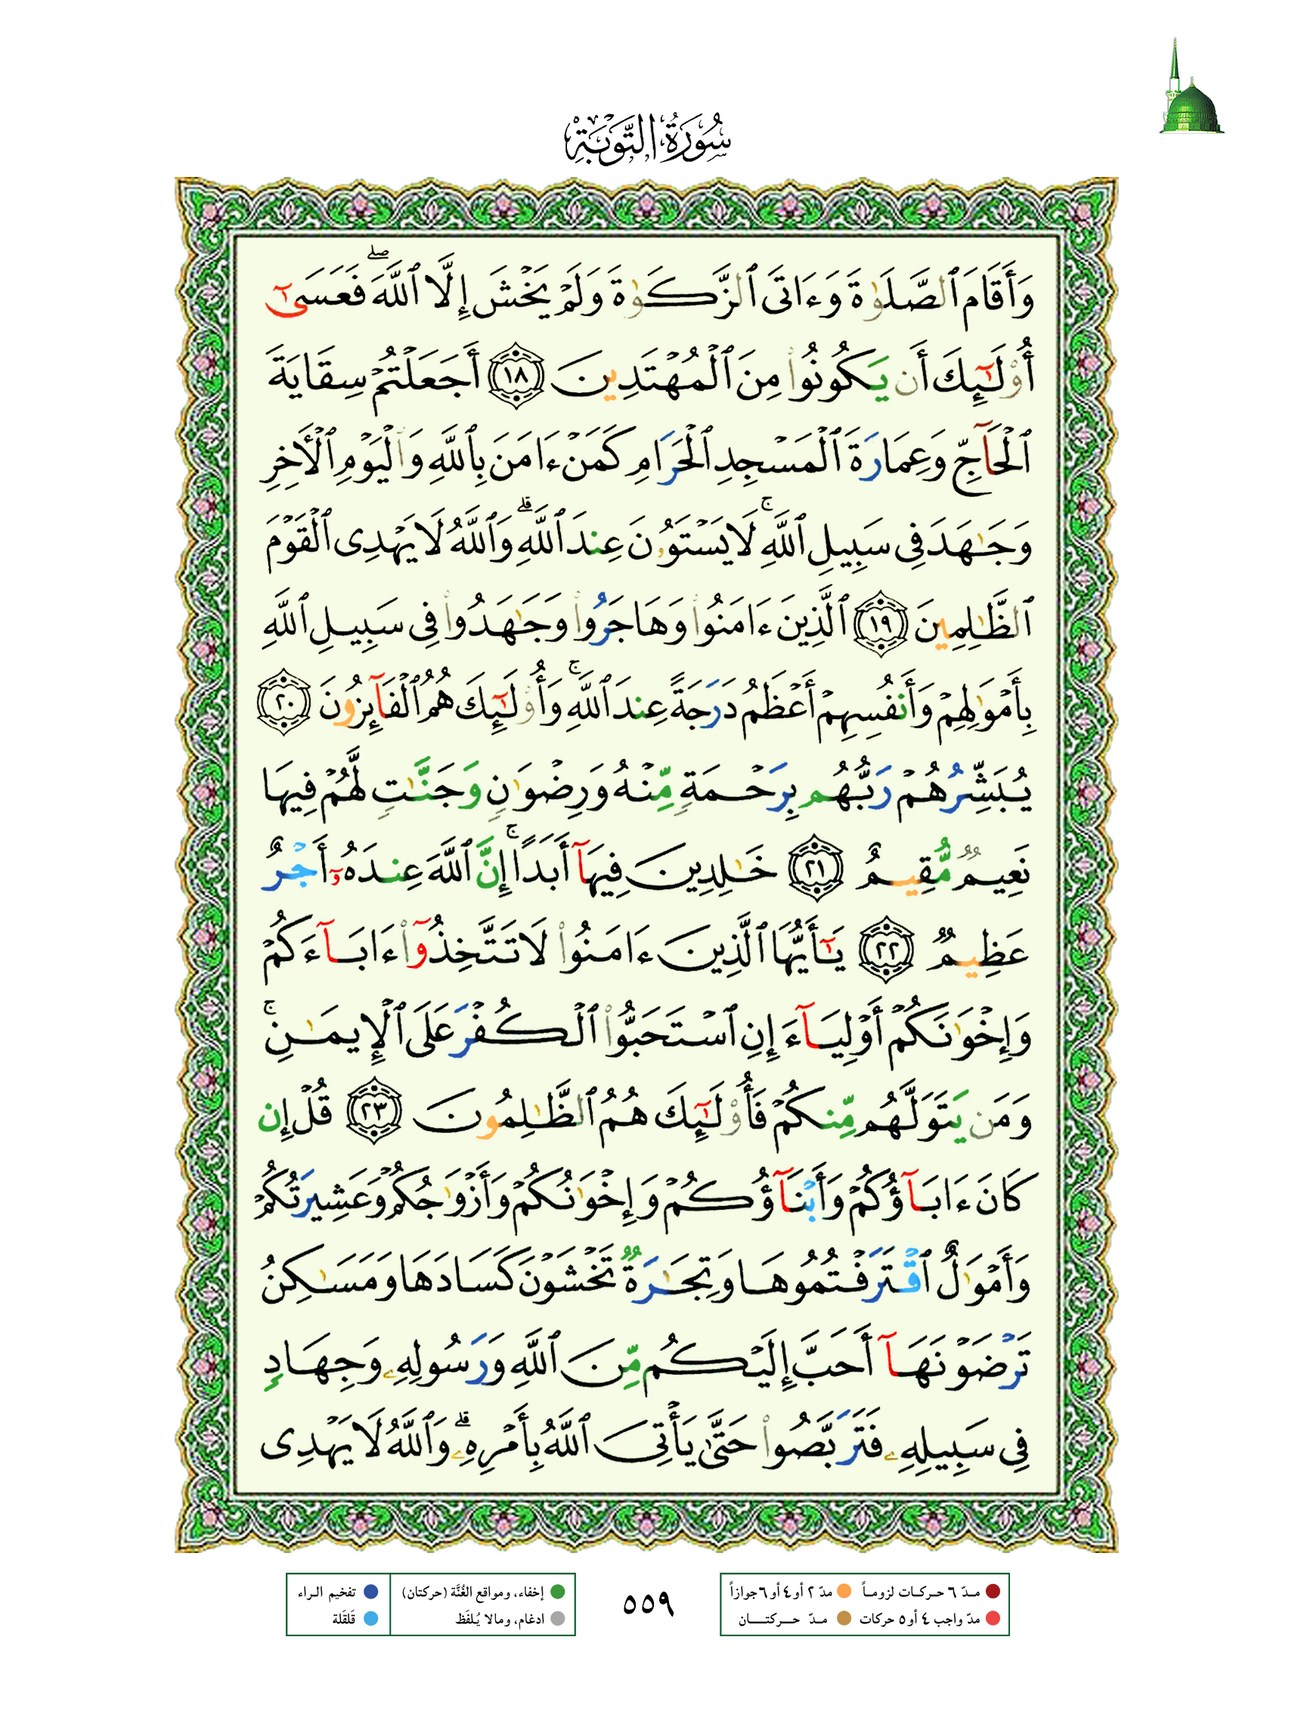 سُورَةُ التَّوْبَةِ
وَأَقَامَ ٱلصَّلَوٰةَ وَءَاتَى ٱلزَّكَوٰةَ وَلَمْ يَخْشَ إِلَّا ٱللَّهَ ۖ فَعَسَىٰٓ
أُو۟لَٰٓئِكَ أَن يَكُونُوا۟ مِنَ ٱلْمُهْتَدِينَ ﴿١٨﴾ أَجَعَلْتُمْ سِقَايَةَ
ٱلْحَآجِّ وَعِمَارَةَ ٱلْمَسْجِدِ ٱلْحَرَامِ كَمَنْ ءَامَنَ بِٱللَّهِ وَٱلْيَوْمِ ٱلْأَخِرِ
وَجَٰهَدَ فِى سَبِيلِ ٱللَّهِ ۚ لَا يَسْتَوُۥنَ عِندَ ٱللَّهِ ۗ وَٱللَّهُ لَا يَهْدِى ٱلْقَوْمَ
ٱلظَّٰلِمِينَ ﴿١٩﴾ ٱلَّذِينَ ءَامَنُوا۟ وَهَاجَرُوا۟ وَجَٰهَدُوا۟ فِى سَبِيلِ ٱللَّهِ
بِأَمْوَٰلِهِمْ وَأَنفُسِهِمْ أَعْظَمُ دَرَجَةً عِندَ ٱللَّهِ ۚ وَأُو۟لَٰٓئِكَ هُمُ ٱلْفَآئِزُونَ ﴿٢٠﴾
يُبَشِّرُهُمْ رَبُّهُم بِرَحْمَةٍ مِّنْهُ وَرِضْوَٰنٍ وَجَنَّٰتٍ لَّهُمْ فِيهَا
نَعِيمٌ مُّقِيمٌ ﴿٢١﴾ خَٰلِدِينَ فِيهَآ أَبَدًا ۚ إِنَّ ٱللَّهَ عِندَهُۥٓ أَجْرٌ
عَظِيمٌ ﴿٢٢﴾ يَٰٓأَيُّهَا ٱلَّذِينَ ءَامَنُوا۟ لَا تَتَّخِذُوٓا۟ ءَابَآءَكُمْ
وَإِخْوَٰنَكُمْ أَوْلِيَآءَ إِنِ ٱسْتَحَبُّوا۟ ٱلْكُفْرَ عَلَى ٱلْإِيمَٰنِ ۚ
وَمَن يَتَوَلَّهُم مِّنكُمْ فَأُو۟لَٰٓئِكَ هُمُ ٱلظَّٰلِمُونَ ﴿٢٣﴾ قُلْ إِن
كَانَ ءَابَآؤُكُمْ وَأَبْنَآؤُكُمْ وَإِخْوَٰنُكُمْ وَأَزْوَٰجُكُمْ وَعَشِيرَتُكُمْ
وَأَمْوَٰلٌ ٱقْتَرَفْتُمُوهَا وَتِجَٰرَةٌ تَخْشَوْنَ كَسَادَهَا وَمَسَٰكِنُ
تَرْضَوْنَهَآ أَحَبَّ إِلَيْكُم مِّنَ ٱللَّهِ وَرَسُولِهِۦ وَجِهَادٍ
فِى سَبِيلِهِۦ فَتَرَبَّصُوا۟ حَتَّىٰ يَأْتِىَ ٱللَّهُ بِأَمْرِهِۦ ۗ وَٱللَّهُ لَا يَهْدِى
مـدّ ٦ حـركـات لزومـاً مدّ ٢ أو ٤ أو ٦ جوازاً
مدّ واجب ٤ أو ٥ حركات مـدّ حـــركتـــان
٥٥٩
إخفاء، ومواقع الغُنَّة (حركتان) تفخيم الراء
ادغام، ومالا يُلفَظ قَلقَلة